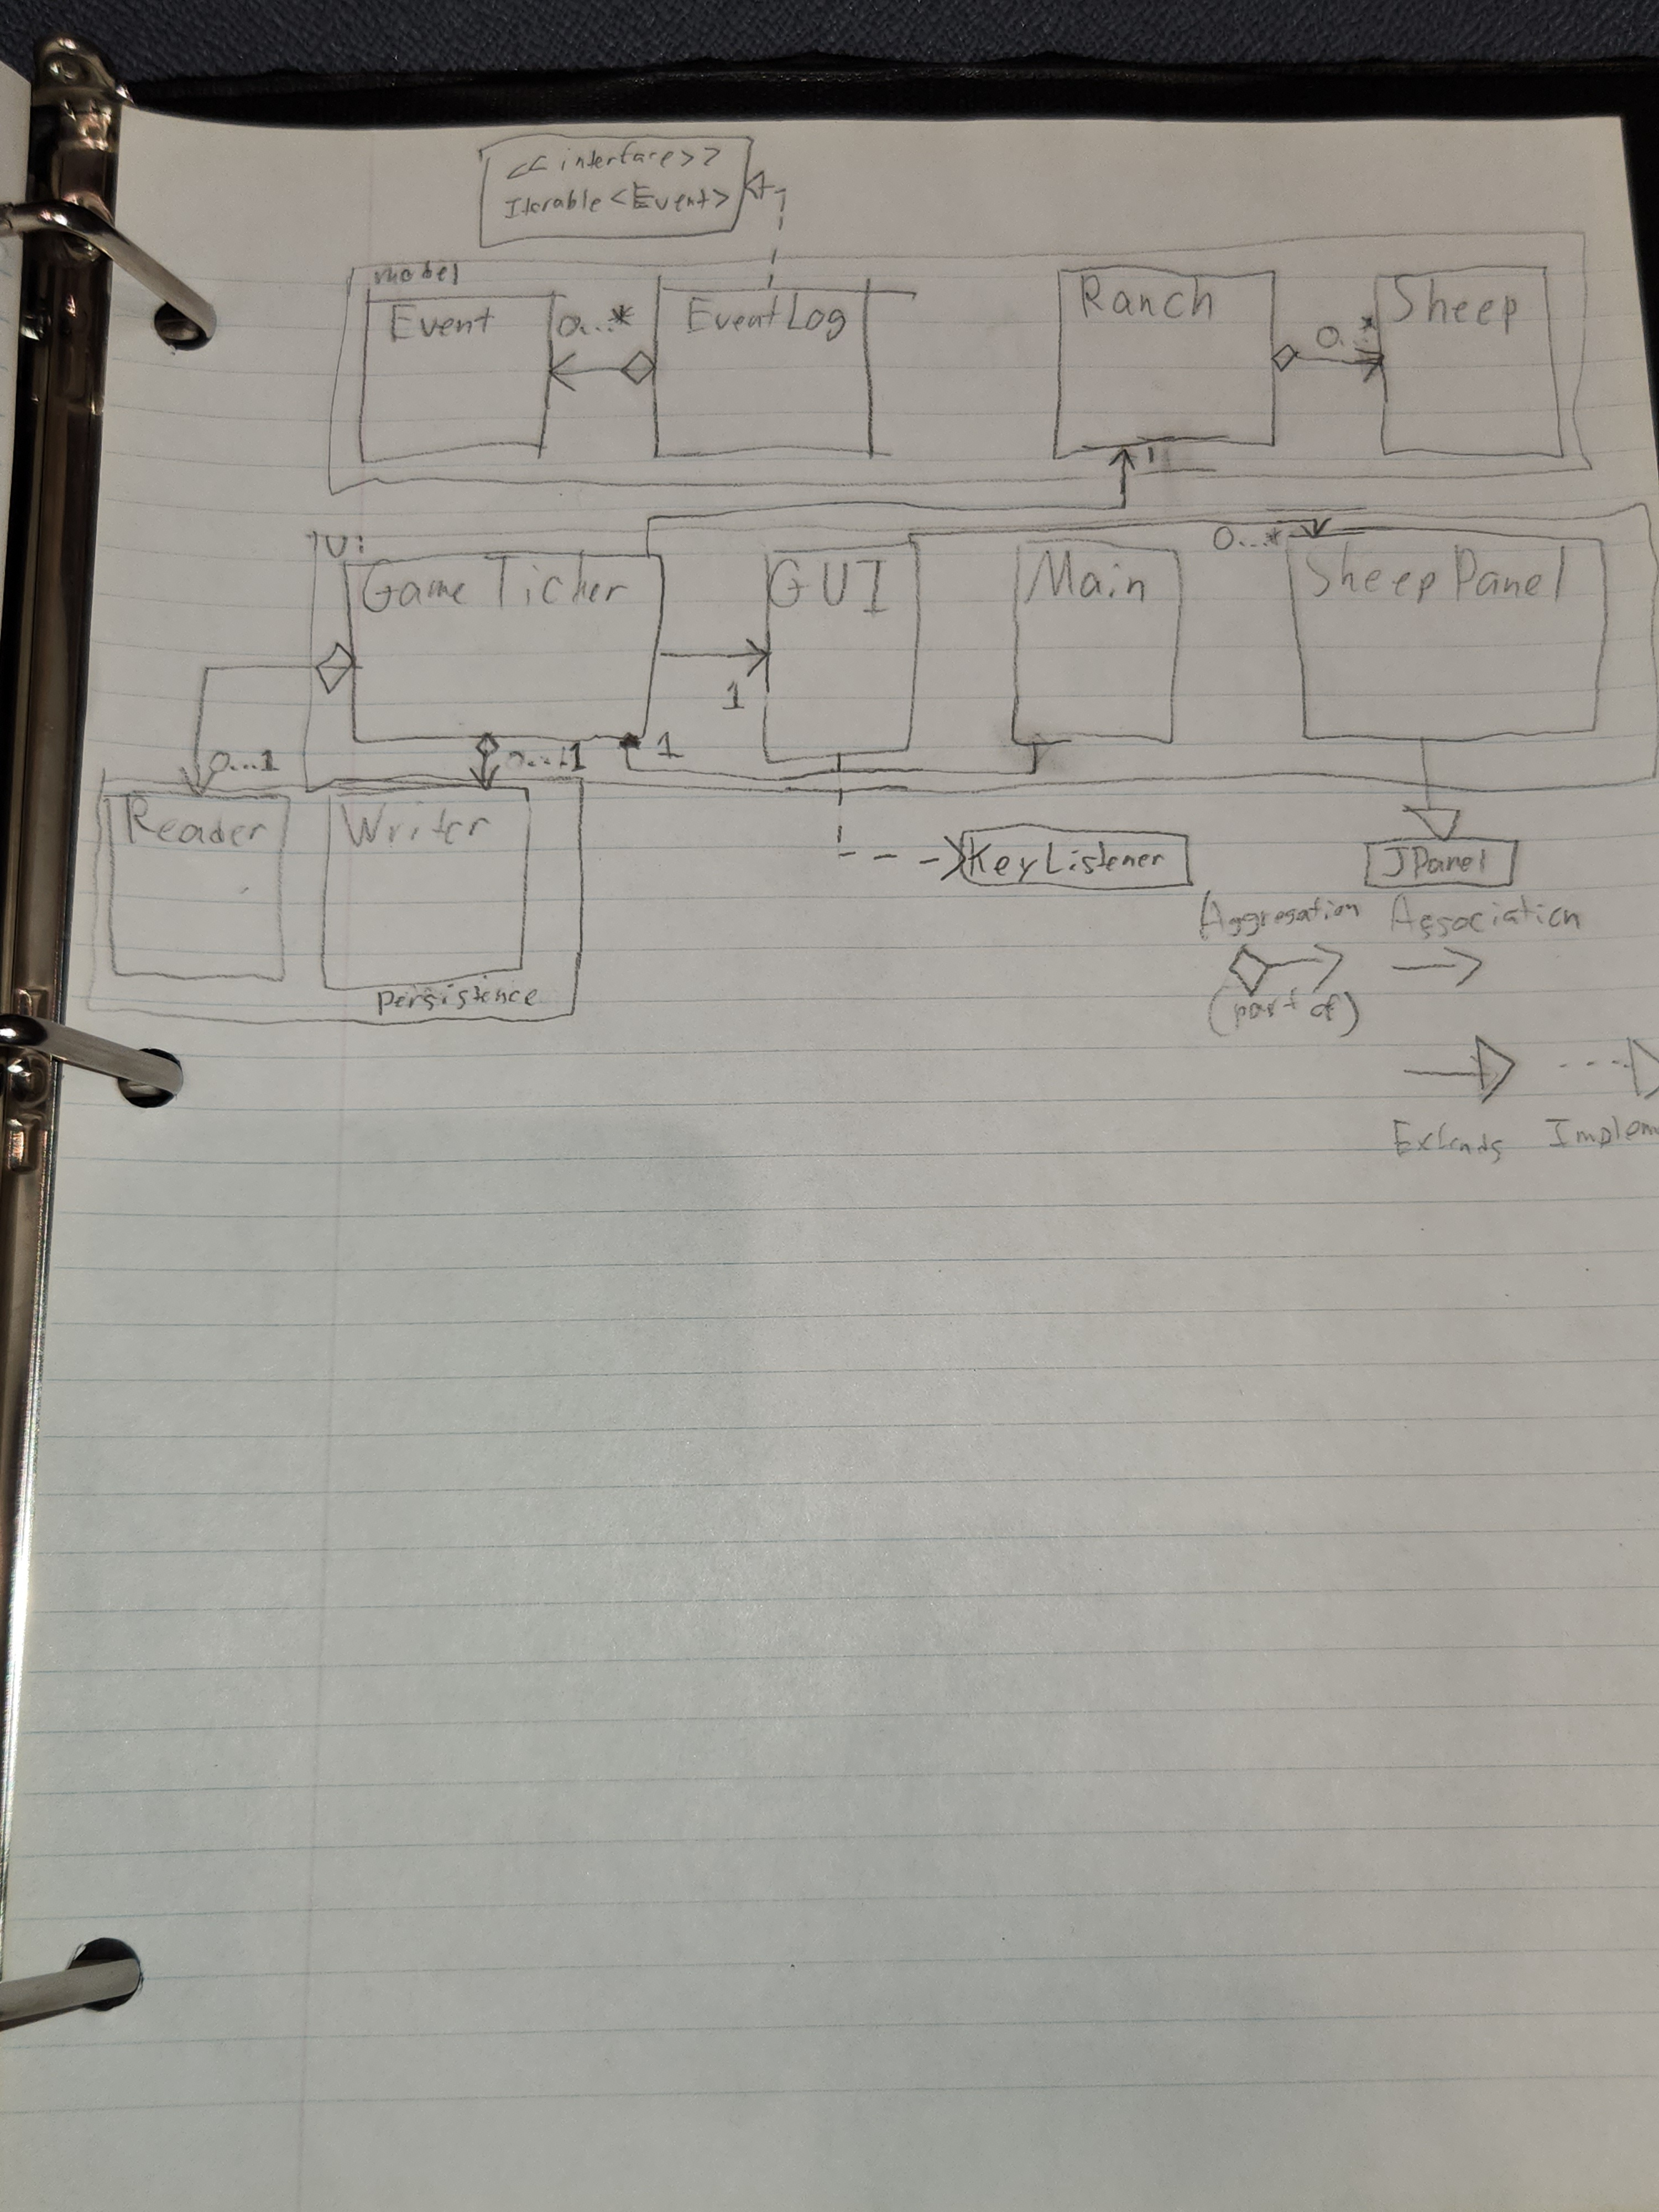 <<interface>>
Iterable<Event>
model
Event
0...*
EventLog
Ranch
0..*
Sheep
1
Ui
GameTicker
1
GUI
Main
0...*
SheepPanel
0...1
0...1
1
Reader
Writer
persistence
KeyListener
JPanel
Aggregation
(part of)
Association
Extends
Implem